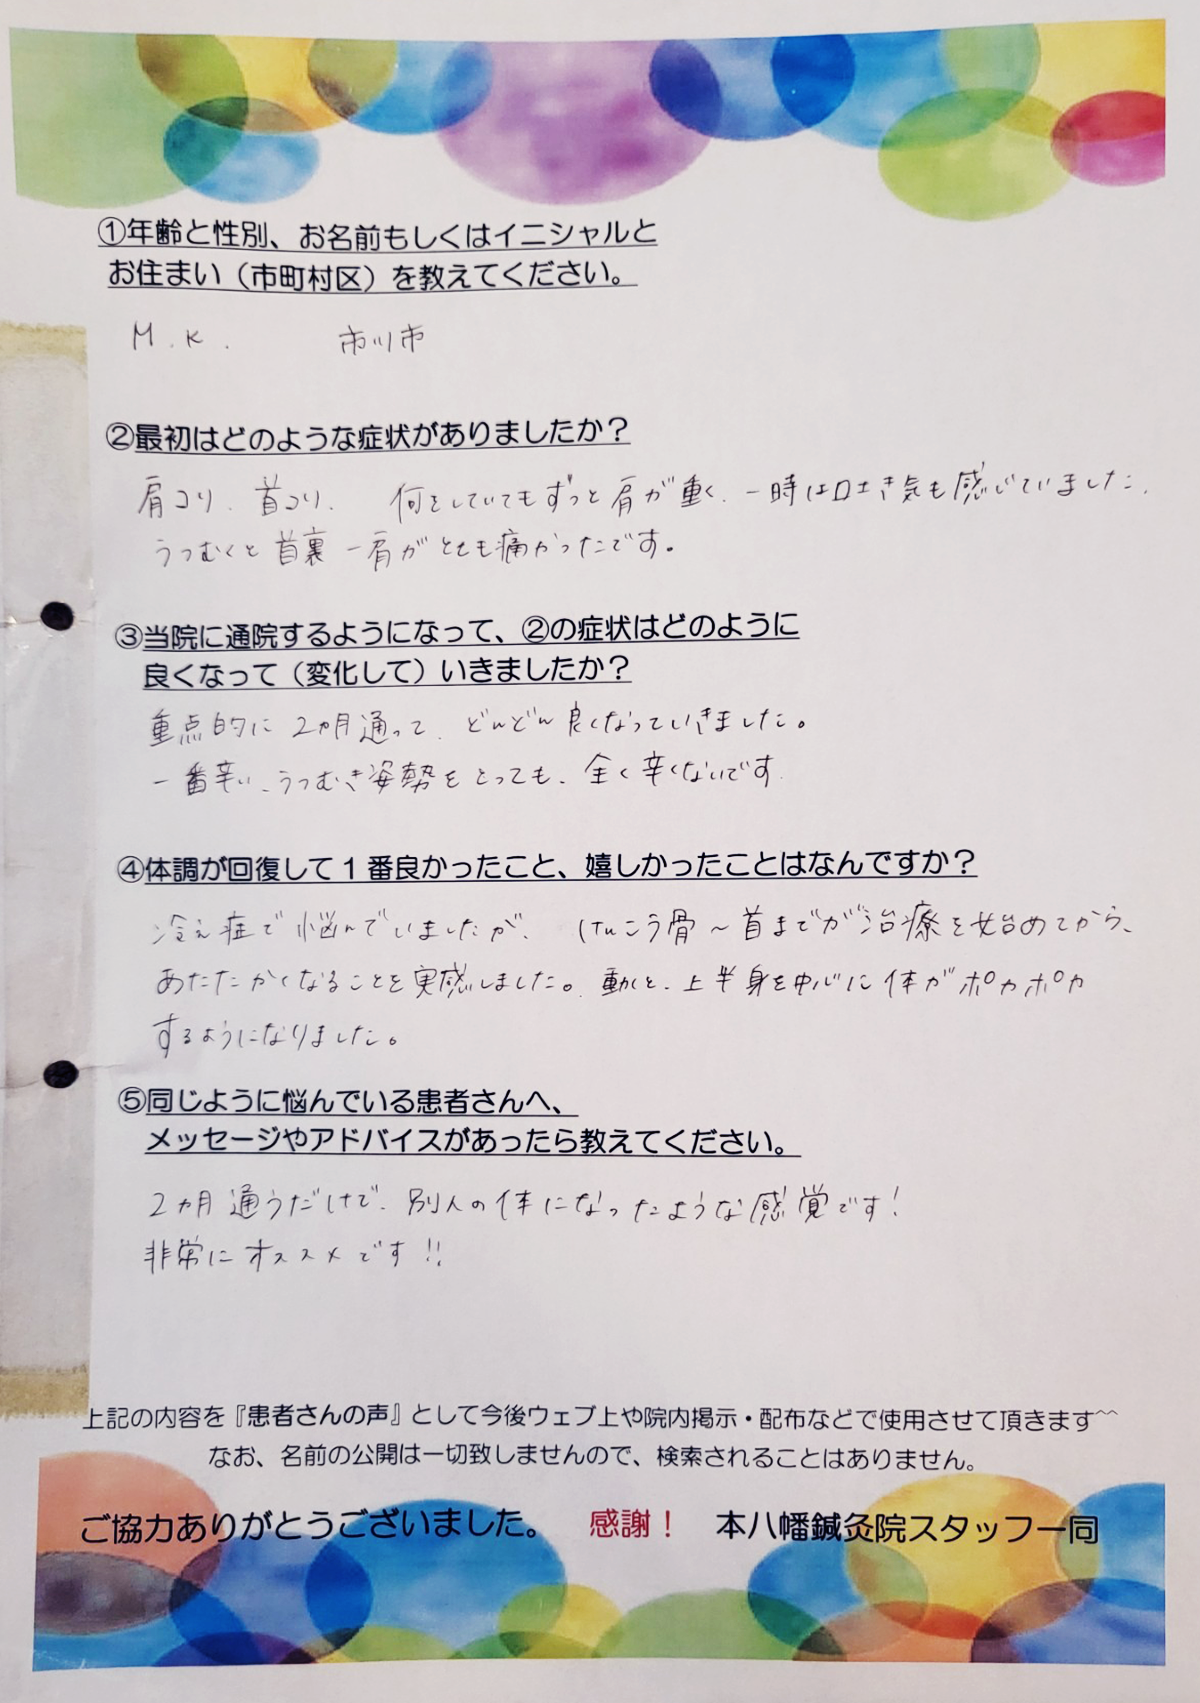 ①年齢と性別、お名前もしくはイニシャルと
お住まい（市町村区）を教えてください。
M.K. 市川市
②最初はどのような症状がありましたか？
肩コリ、首コリ、何をしていてもずっと肩が重く、一時は吐き気も感じていました。
うつむくと首裏ー肩がとても痛かったです。
③当院に通院するようになって、②の症状はどのように
良くなって（変化して）いきましたか？
重点的に2ヵ月通って、どんどん良くなっていきました。
一番辛い、うつむき姿勢をとっても、全く辛くないです。
④体調が回復して1番良かったこと、嬉しかったことはなんですか？
冷え症で悩んでいましたが、けんこう骨～首までが治療を始めてから、
あたたかくなることを実感しました。動くと、上半身を中心に体がポカポカ
するようになりました。
⑤同じように悩んでいる患者さんへ、
メッセージやアドバイスがあったら教えてください。
2ヵ月通うだけで、別人の体になったような感覚です！
非常にオススメです！！
上記の内容を『患者さんの声』として今後ウェブ上や院内掲示・配布などで使用させて頂きます^^
なお、名前の公開は一切致しませんので、検索されることはありません。
ご協力ありがとうございました。 感謝！ 本八幡鍼灸院スタッフ一同